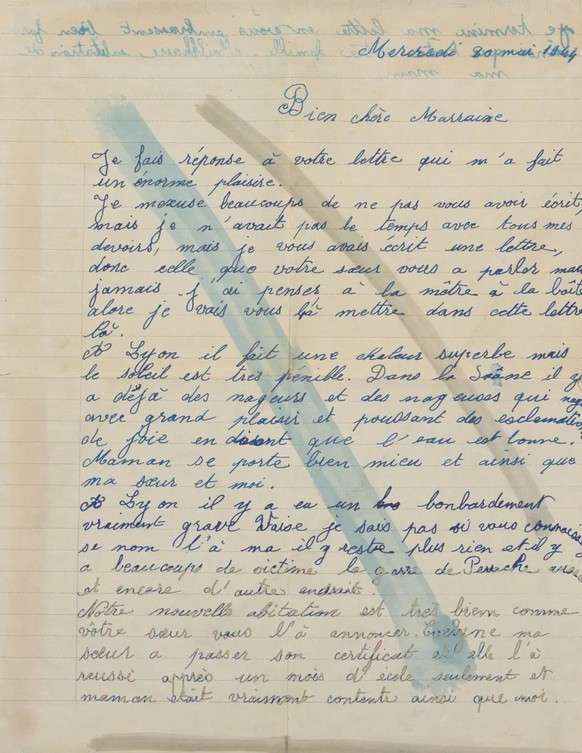 Mercredi 30 mai 1944
Bien chère Marraine
Je fais réponse à votre lettre qui m'a fait
un énorme plaisire.
Je mexuse beaucoups de ne pas vous avoir écrit
mais je n'avait pas le temps avec tous mes
devoirs, mais je vous avais écrit une lettre,
donc celle que votre sœur vous a parler mais
jamais j'ai penser à la mètre à la boîte
alore je vais vous là mettre dans cette lettre
là.
A Lyon il fait une chaleur superbe mais
le soleil est tres pénible. Dans la Saône il y
a déjà des nageurs et des nageuses qui
avec grand plaisir et poussant des esclamations
de joie en disent que l'eau est bonne.
Maman se porte bien mieu et ainsi que
ma sœur et moi.
A Lyon il y a eu un bonbardement
vraiment grave Vaise je sais pas si vous connaissez
se nom l'à ma il y reste plus rien et il y
a beaucoups de victime la gare de Perrache aussi
et encore d'autre endroit.
Notre nouvelle abitation est tres biem comme
vôtre sœur vous l'à annoncer. ma
sœur a passer son certificat et elle l'à
reussi apprès un mois d'école seulement et
maman était vraiment contente ainsi que moi.